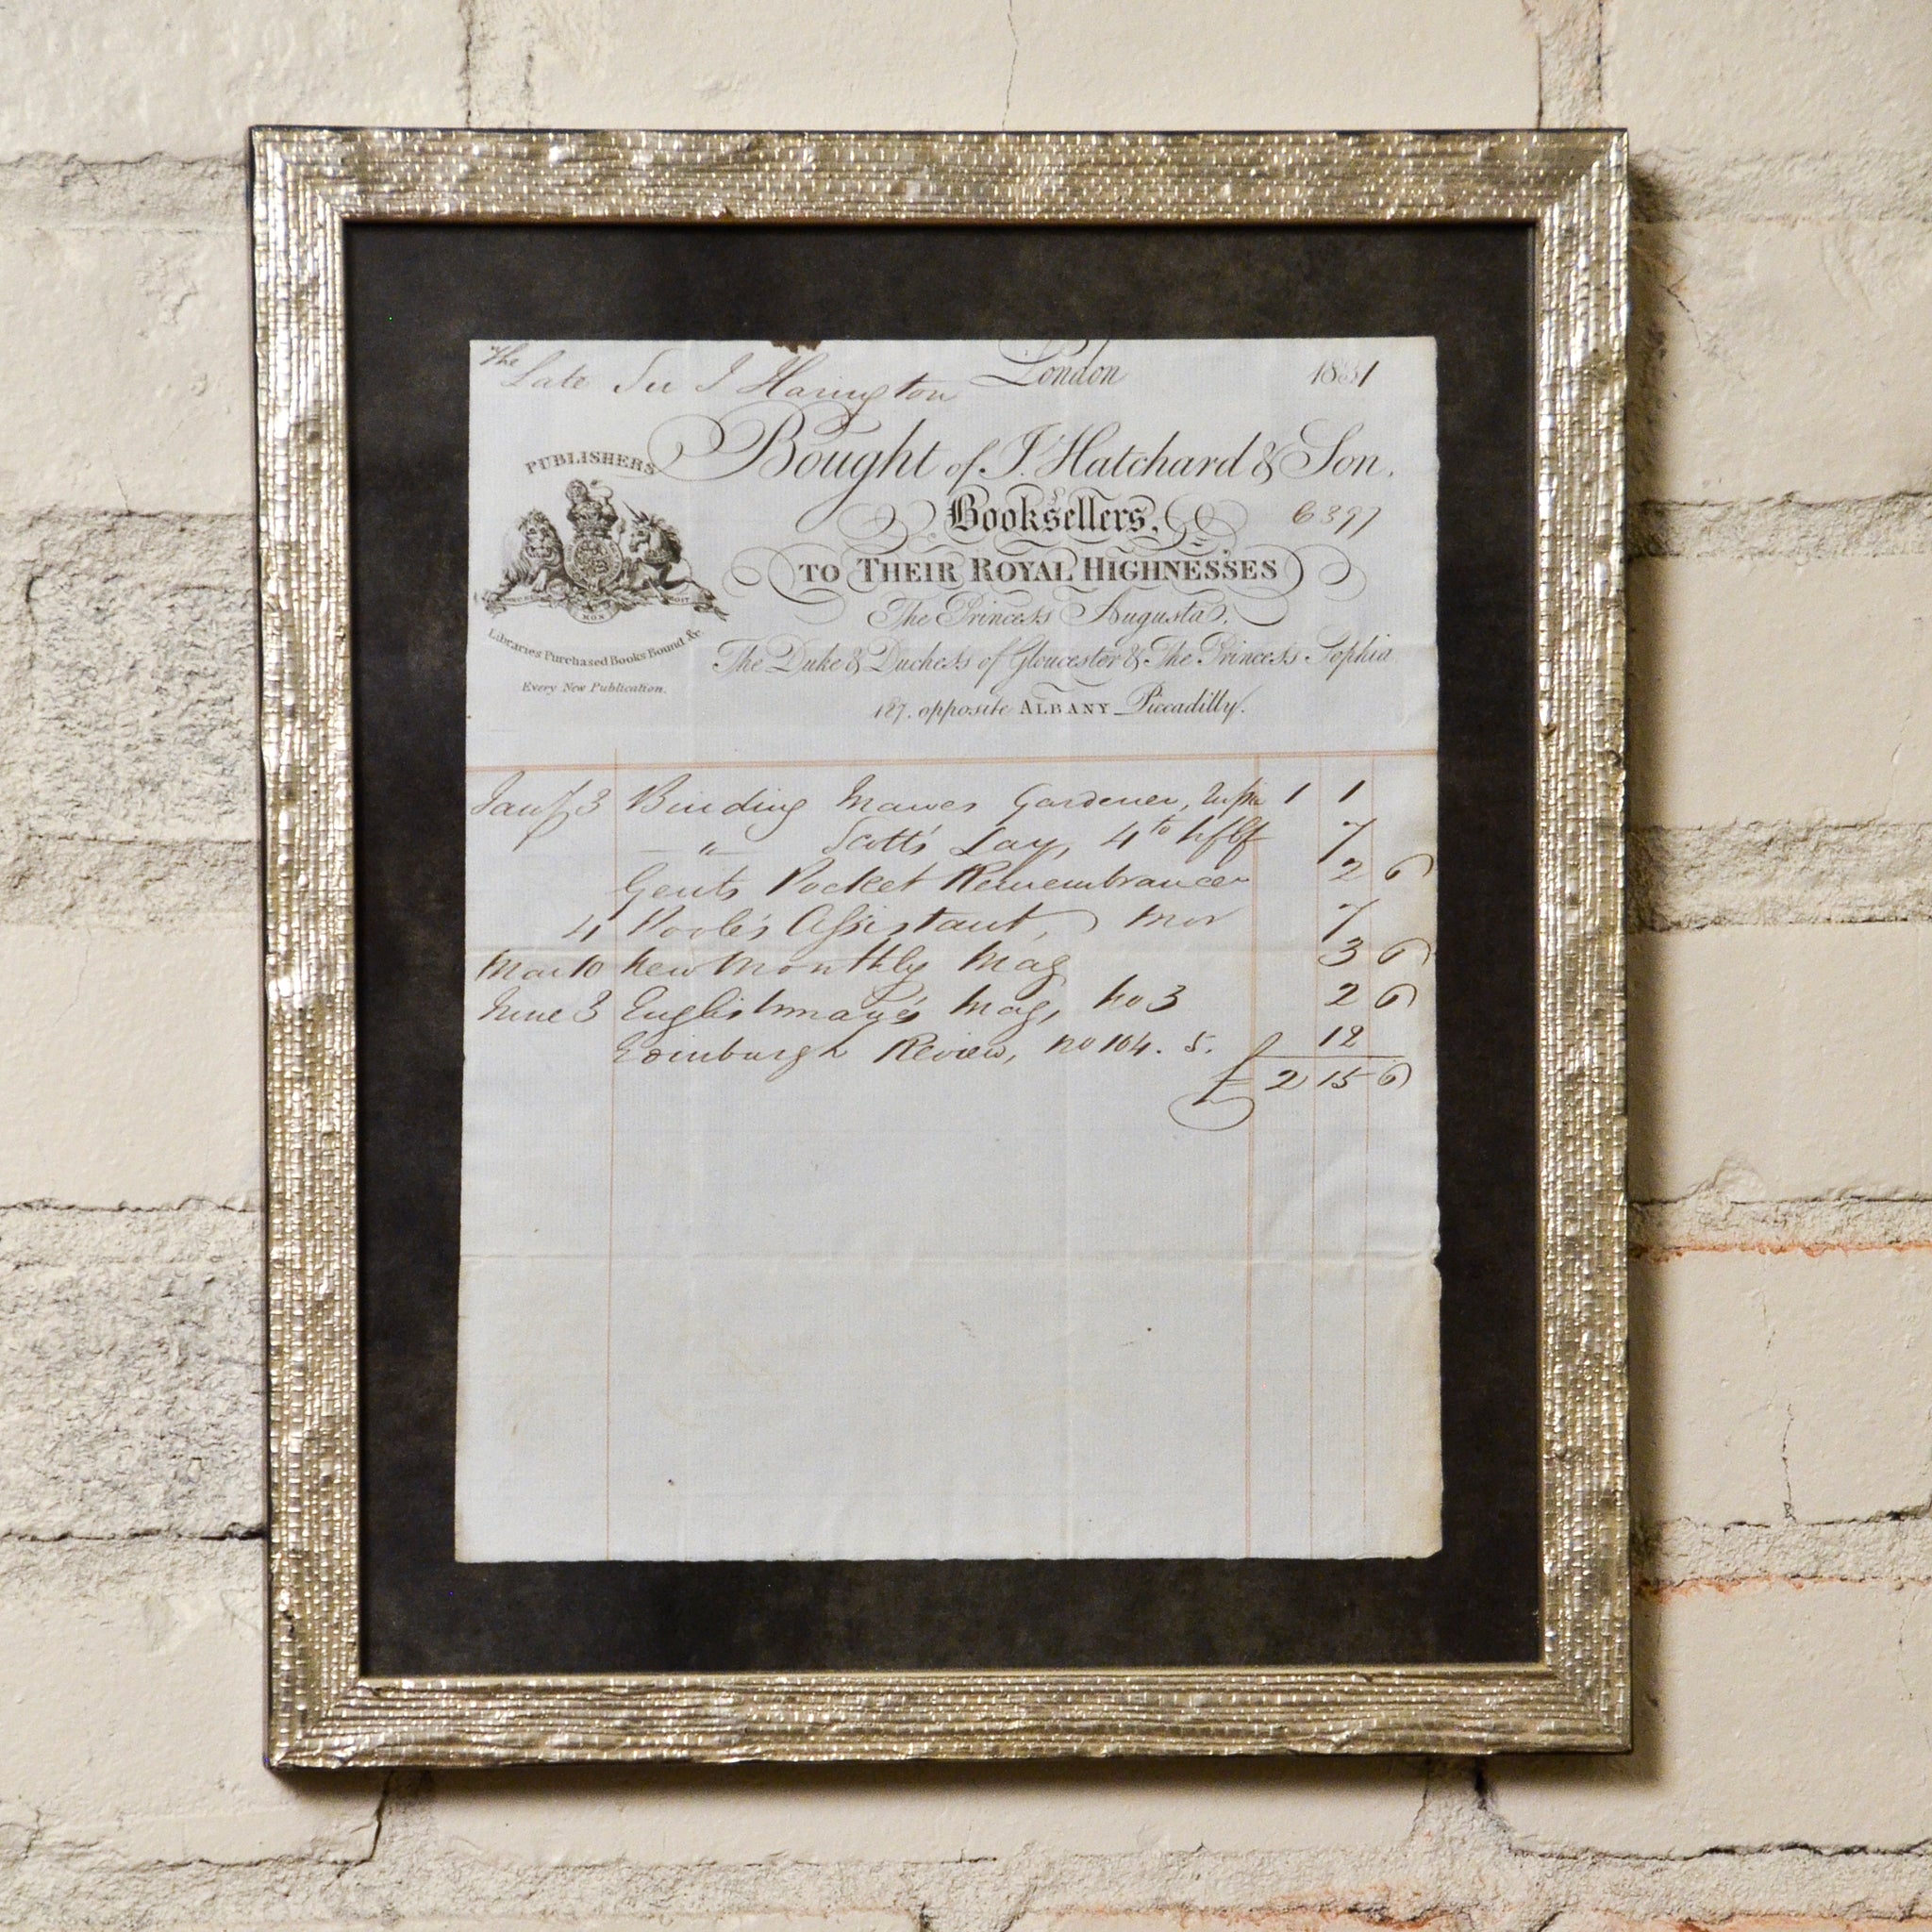 The Late Sir J Harington London 1831
PUBLISHERS
Bought of J. Hatchard & Son.
Booksellers, 6397
TO THEIR ROYAL HIGHNESSES
The Princess Augusta,
The Duke & Duchess of Gloucester & The Princess Sophia
187. opposite ALBANY Piccadilly.
MON
Libraries Purchased Books Bound &c
Every New Publication.
Jany 3 Binding Mawes Gardener, 1 1
" Scotts Lay, 4to hf 7
Gents Pocket Remembrancer 2 6
4 Poole's Assistant, mor 7
Mar 10 New Monthly Mag 3 6
June 3 Englishman's Mag, No 3 2 6
Edinburgh Review, no 104. 5. 12
£ 2 15 6